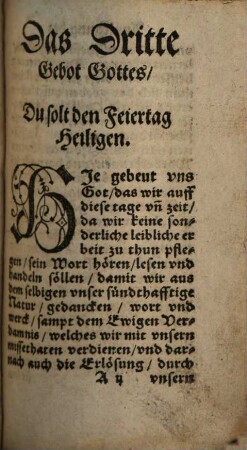 Das Dritte
Gebot Gottes/
Du solt den Feiertag
Heiligen.
HJe gebeut vns
Got/das wir auff
diese tage vn̄ zeit/
da wir keine son-
derliche leibliche er
beit zu thun pfle-
gen/sein Wort hören/lesen vnd
handeln söllen/damit wir aus
dem selbigen vnser sündthafftige
Natur/gedancken/wort vnd
werck/sampt dem Ewigen Ver-
damnis/welches wir mit vnsern
missethaten verdienen/vnd dar-
nach auch die Erlösung/durch
A ij vnsern